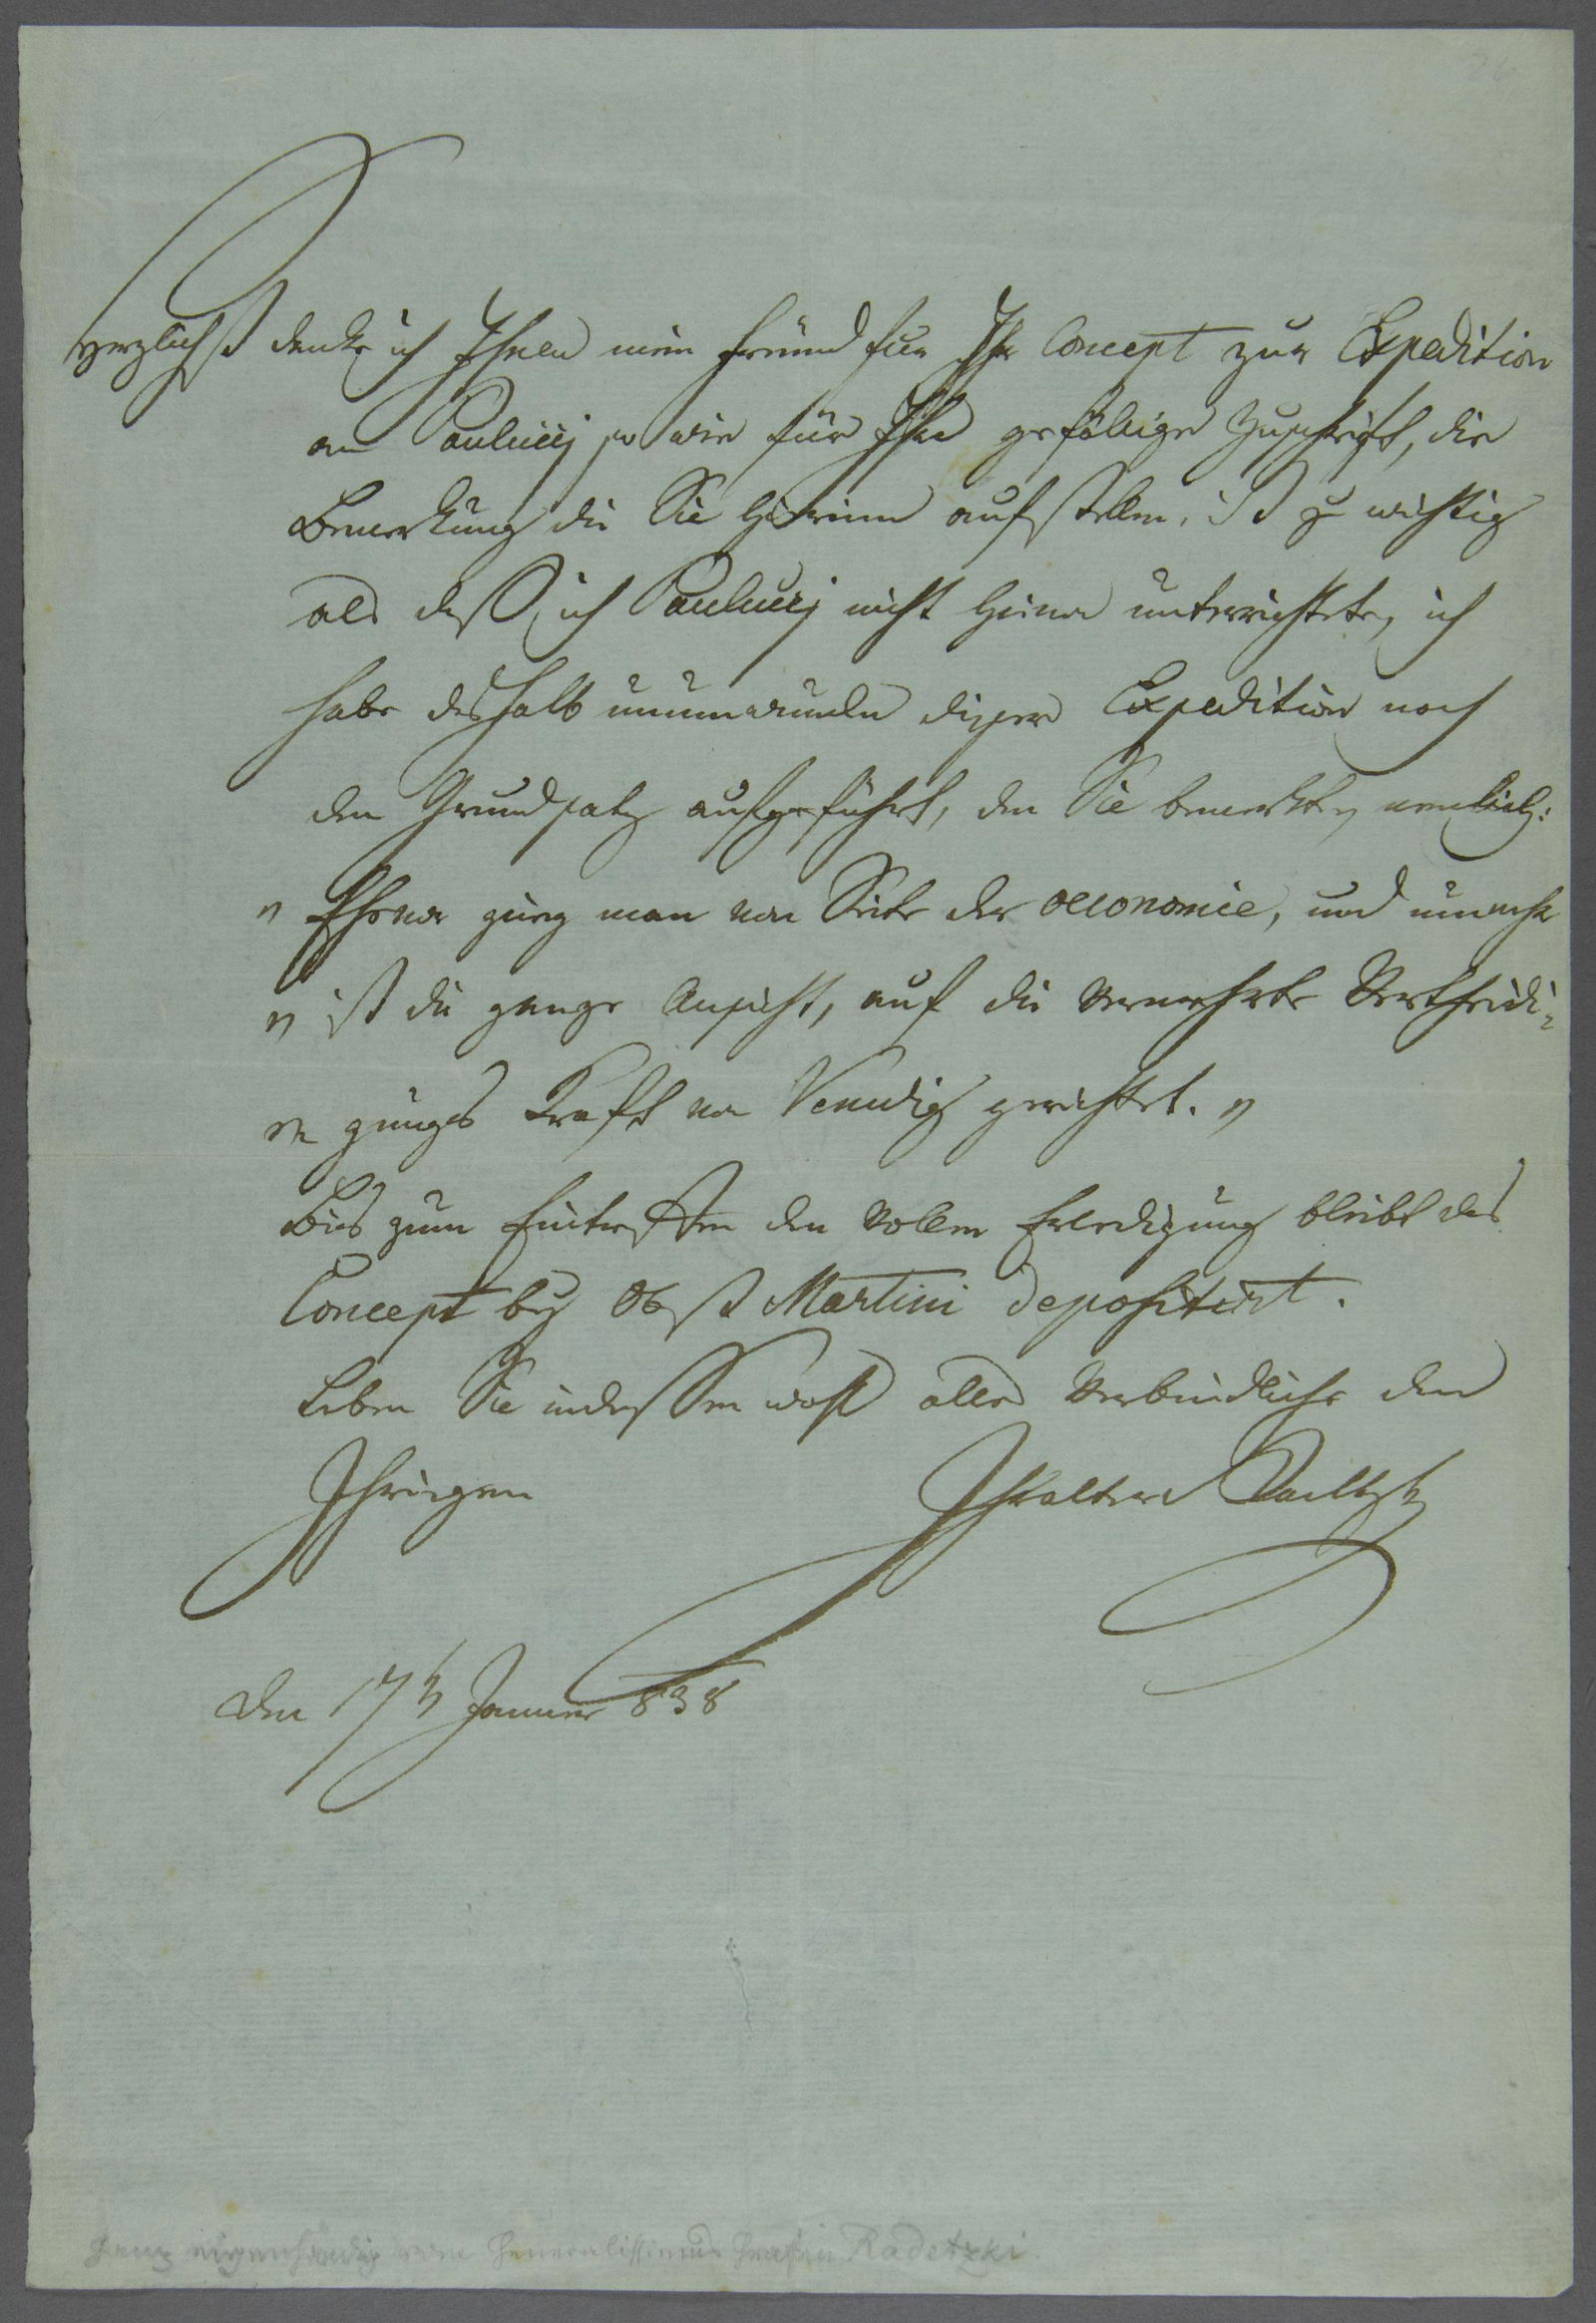 Herzlichst danke ich Ihnen mein Freund fur Ihr Concept zur Expedition
an Paulucij so wie für Ihre gefällige Zuschrift, die
Bemerkung die Sie hierinn aufstellen, ist zu wichtig
als daß ich Paulucij nicht hievon unterrichtete, ich
habe deshalb unumwunden dieser Expedition noch
den Grundsatz aufgeführt, den Sie bemerkten nemlich:
" gieng man von Seite der oeconomie, und
" ist die ganze Ansicht, auf die vermehrte Vertheidi-
" gungs Kraft von Venedig gerichtet. "
Bis zum Eintreffen der vollen Erledigung bleibt das
Concept bey Obst Martini depositirt.
Leben Sie indessen wohl alles Verbindliche den
Ihrigen Ihr alter Radetzky
den 17t Janner 838
26
ganz eigenhändig vom Generalissimus Grafen Radetzki.